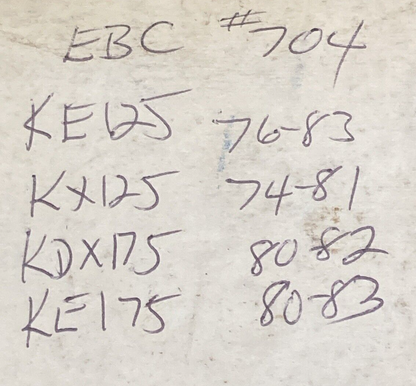 EBC #704
KE125 76-83
KX125 74-81
KDX175 80-82
KE175 80-83